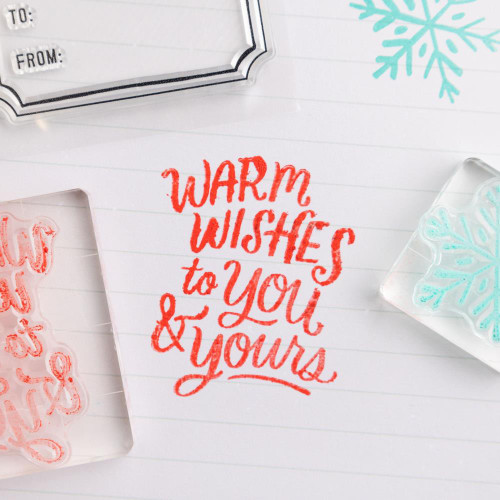 TO:
FROM:
WARM
WISHES
to YOU
& Yours